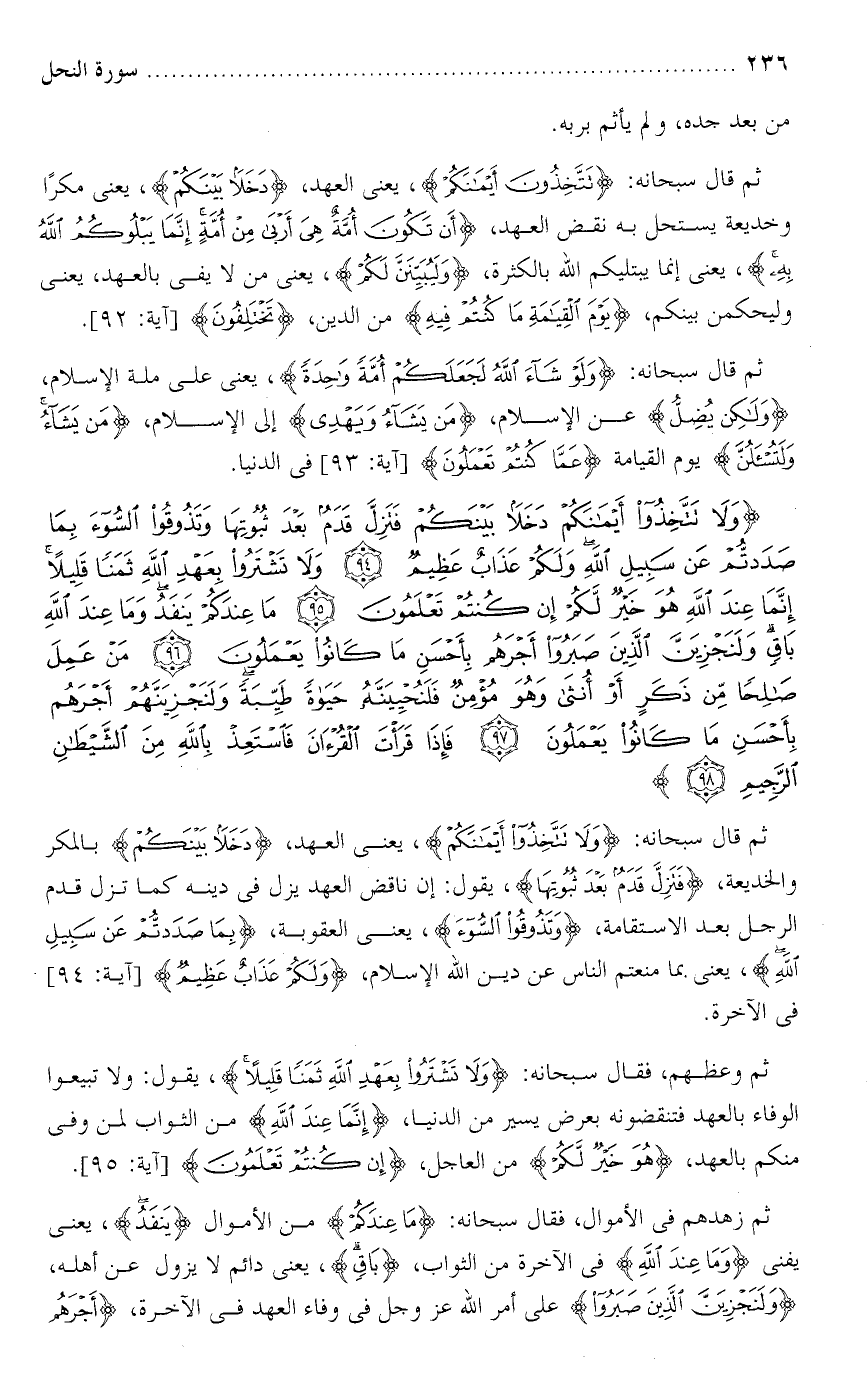 ٢٣٦ ........................................................................ سورة النحل
من بعد جده، ولم يأثم بربه.
ثم قال سبحانه: ﴿نَتَّخِذُونَ أَيْمَٰنَكُمْ﴾، يعنى العهد، ﴿دَخَلًۢا بَيْنَكُمْ﴾، يعنى مكرًا
وخديعة يستحل به نقض العهد، ﴿أَن تَكُونَ أُمَّةٌ هِىَ أَرْبَىٰ مِنْ أُمَّةٍ ۚ إِنَّمَا يَبْلُوكُمُ ٱللَّهُ
بِهِۦ ۚ﴾، يعنى إنما يبتليكم الله بالكثرة، ﴿وَلَيُبَيِّنَنَّ لَكُمْ﴾، يعنى من لا يفى بالعهد، يعنى
وليحكمن بينكم، ﴿يَوْمَ ٱلْقِيَٰمَةِ مَا كُنتُمْ فِيهِ﴾ من الدين، ﴿تَخْتَلِفُونَ﴾ [آية: ٩٢].
ثم قال سبحانه: ﴿وَلَوْ شَآءَ ٱللَّهُ لَجَعَلَكُمْ أُمَّةً وَٰحِدَةً﴾، يعنى على ملة الإسلام،
﴿وَلَٰكِن يُضِلُّ﴾ عن الإسلام، ﴿مَن يَشَآءُ وَيَهْدِى﴾ إلى الإسلام، ﴿مَن يَشَآءُ ۚ
وَلَتُسْـَٔلُنَّ﴾ يوم القيامة ﴿عَمَّا كُنتُمْ تَعْمَلُونَ﴾ [آية: ٩٣] فى الدنيا.
﴿وَلَا تَتَّخِذُوٓا۟ أَيْمَٰنَكُمْ دَخَلًۢا بَيْنَكُمْ فَتَزِلَّ قَدَمٌۢ بَعْدَ ثُبُوتِهَا وَتَذُوقُوا۟ ٱلسُّوٓءَ بِمَا
صَدَدتُّمْ عَن سَبِيلِ ٱللَّهِ ۖ وَلَكُمْ عَذَابٌ عَظِيمٌ ٩٤ وَلَا تَشْتَرُوا۟ بِعَهْدِ ٱللَّهِ ثَمَنًا قَلِيلًا ۚ
إِنَّمَا عِندَ ٱللَّهِ هُوَ خَيْرٌ لَّكُمْ إِن كُنتُمْ تَعْلَمُونَ ٩٥ مَا عِندَكُمْ يَنفَدُ ۖ وَمَا عِندَ ٱللَّهِ
بَاقٍ ۗ وَلَنَجْزِيَنَّ ٱلَّذِينَ صَبَرُوٓا۟ أَجْرَهُم بِأَحْسَنِ مَا كَانُوا۟ يَعْمَلُونَ ٩٦ مَنْ عَمِلَ
صَٰلِحًا مِّن ذَكَرٍ أَوْ أُنثَىٰ وَهُوَ مُؤْمِنٌ فَلَنُحْيِيَنَّهُۥ حَيَوٰةً طَيِّبَةً ۖ وَلَنَجْزِيَنَّهُمْ أَجْرَهُم
بِأَحْسَنِ مَا كَانُوا۟ يَعْمَلُونَ ٩٧ فَإِذَا قَرَأْتَ ٱلْقُرْءَانَ فَٱسْتَعِذْ بِٱللَّهِ مِنَ ٱلشَّيْطَٰنِ
ٱلرَّجِيمِ ٩٨﴾
ثم قال سبحانه: ﴿وَلَا تَتَّخِذُوٓا۟ أَيْمَٰنَكُمْ﴾، يعنى العهد، ﴿دَخَلًۢا بَيْنَكُمْ﴾ بالمكر
والخديعة، ﴿فَتَزِلَّ قَدَمٌۢ بَعْدَ ثُبُوتِهَا﴾، يقول: إن ناقض العهد يزل فى دينه كما تزل قدم
الرجل بعد الاستقامة، ﴿وَتَذُوقُوا۟ ٱلسُّوٓءَ﴾، يعنى العقوبة، ﴿بِمَا صَدَدتُّمْ عَن سَبِيلِ
ٱللَّهِ ۖ﴾، يعنى بما منعتم الناس عن دين الله الإسلام، ﴿وَلَكُمْ عَذَابٌ عَظِيمٌ﴾ [آية: ٩٤]
فى الآخرة.
ثم وعظهم، فقال سبحانه: ﴿وَلَا تَشْتَرُوا۟ بِعَهْدِ ٱللَّهِ ثَمَنًا قَلِيلًا ۚ﴾، يقول: ولا تبيعوا
الوفاء بالعهد فتنقضونه بعرض يسير من الدنيا، ﴿إِنَّمَا عِندَ ٱللَّهِ﴾ من الثواب لمن وفى
منكم بالعهد، ﴿هُوَ خَيْرٌ لَّكُمْ﴾ من العاجل، ﴿إِن كُنتُمْ تَعْلَمُونَ﴾ [آية: ٩٥].
ثم زهدهم فى الأموال، فقال سبحانه: ﴿مَا عِندَكُمْ﴾ من الأموال ﴿يَنفَدُ ۖ﴾، يعنى
يفنى ﴿وَمَا عِندَ ٱللَّهِ﴾ فى الآخرة من الثواب، ﴿بَاقٍ ۗ﴾، يعنى دائم لا يزول عن أهله،
﴿وَلَنَجْزِيَنَّ ٱلَّذِينَ صَبَرُوٓا۟﴾ على أمر الله عز وجل فى وفاء العهد فى الآخرة، ﴿أَجْرَهُم